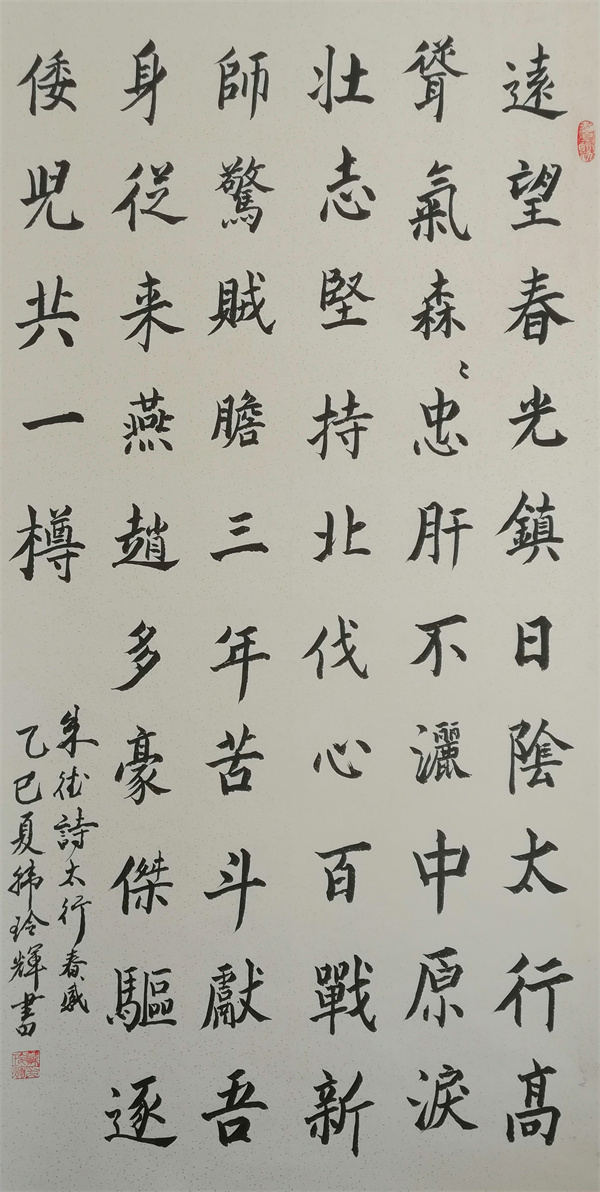 遠望春光鎮日陰太行高
聳氣森〻忠肝不灑中原淚
壯志堅持北伐心百戰新
師驚賊膽三年苦斗獻吾
身從来燕趙多豪傑驅逐
倭兒共一樽
朱德詩太行春感
乙巳夏韩玲輝書